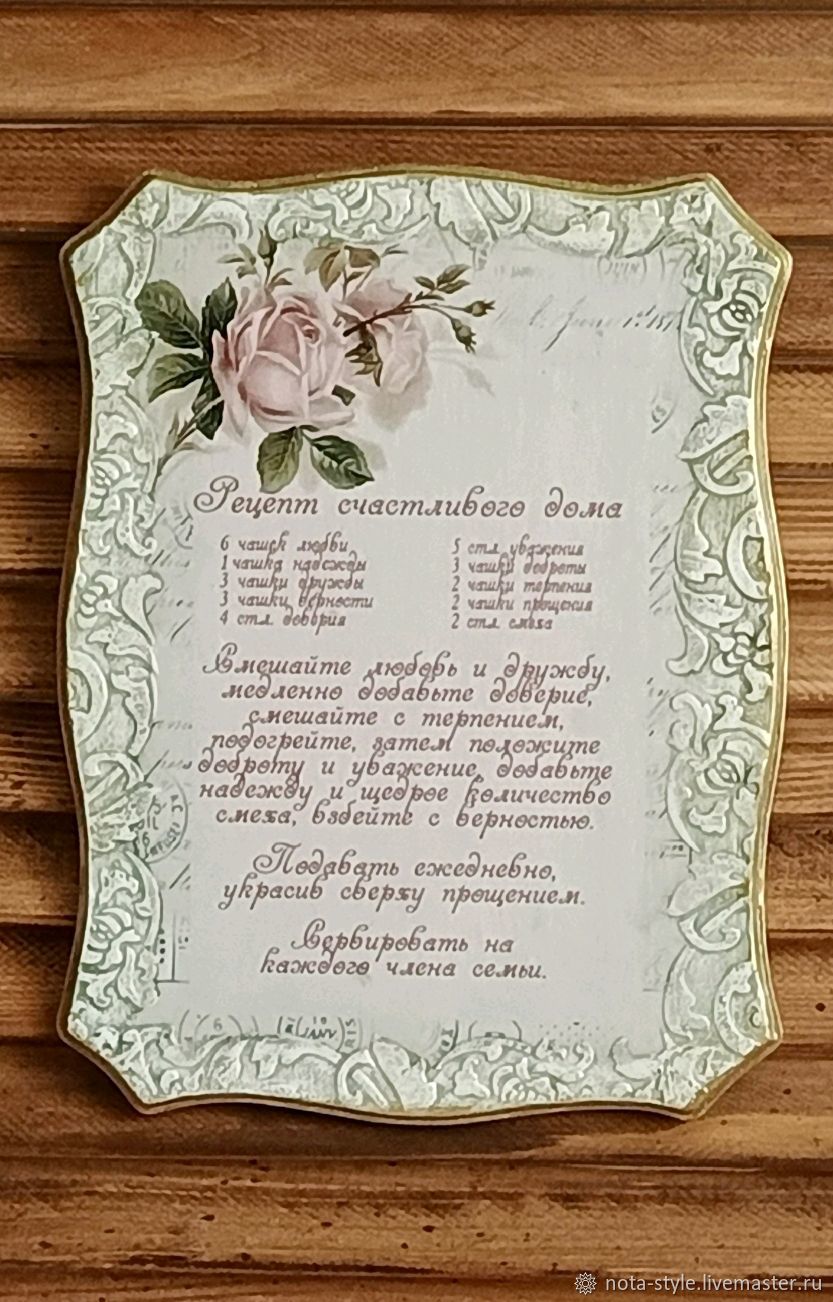 Рецепт счастливого дома
6 чашек любви
1 чашка надежды
3 чашки дружбы
3 чашки верности
4 стл. доверия
5 стл. уважения
3 чашки доброты
2 чашки терпения
2 чашки прощения
2 стл. смеха
Смешайте любовь и дружбу,
медленно добавьте доверие,
смешайте с терпением,
подогрейте, затем положите
доброту и уважение, добавьте
надежду и щедрое количество
смеха, взбейте с верностью.
Подавать ежедневно,
украсив сверху прощением.
Сервировать на
каждого члена семьи.
nota-style.livemaster.ru